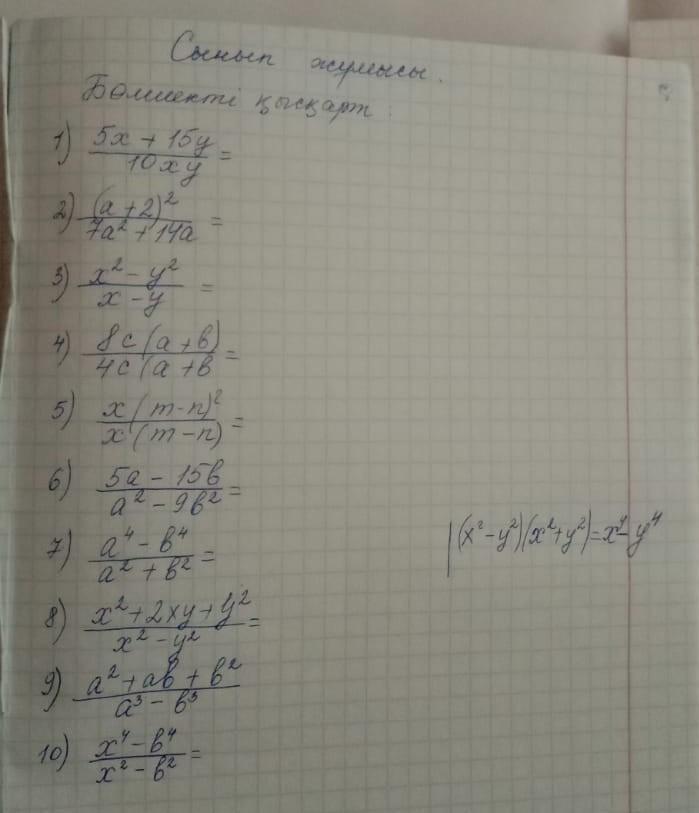 Сынып жұмысы.
Бөлшекті қысқарт:
1) (5x + 15y)/(10xy) =
2) (a+2)²/(7a² + 14a) =
3) (x² - y²)/(x - y) =
4) 8c(a+b)/4c(a+b =
5) x(m-n)²/x(m-n) =
6) (5a - 15b)/(a² - 9b²) =
7) (a⁴ - b⁴)/(a² + b²) =
|(x² - y²)(x² + y²) = x⁴ - y⁴
8) (x² + 2xy + y²)/(x² - y²) =
9) (a² + ab + b²)/(a³ - b³)
10) (x⁴ - b⁴)/(x² - b²) =